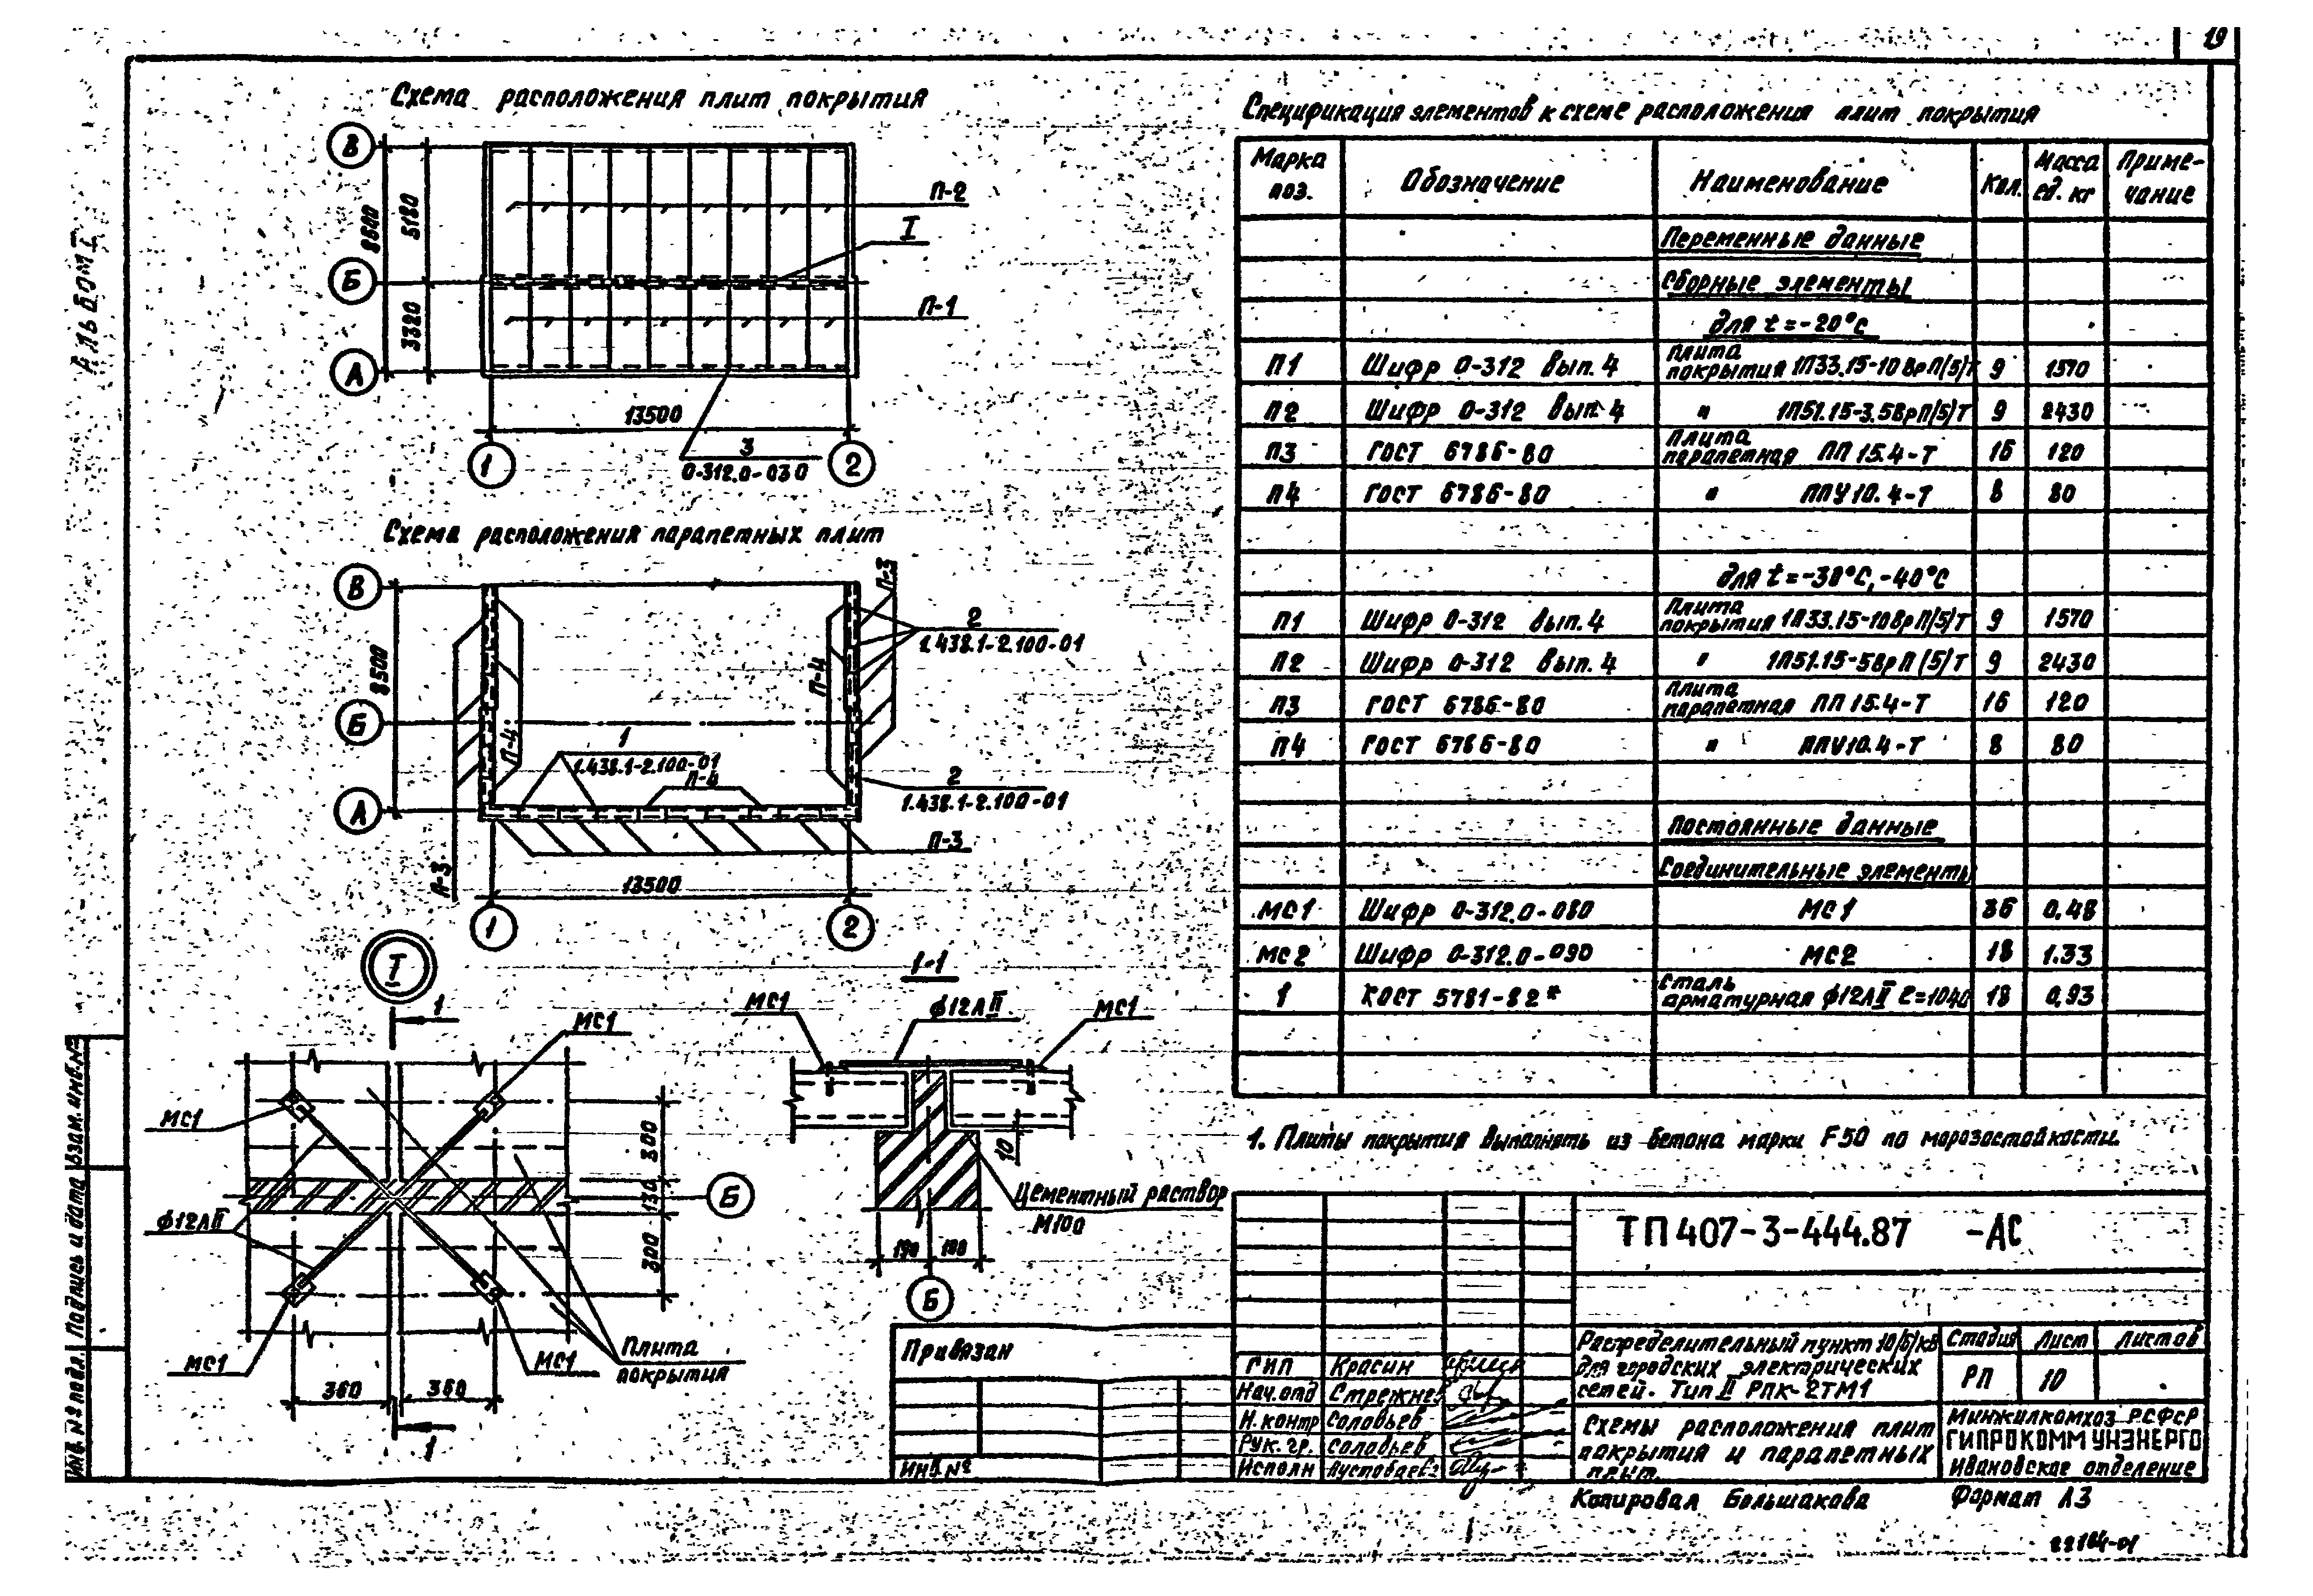 19
Альбом I
Схема расположения плит покрытия
В
Б
А
8600
5180
3320
П-2
I
П-1
13500
3
0-312.0-030
1
2
Схема расположения парапетных плит
В
Б
А
8500
П-3
2
1.438.1-2.100-01
П-4
П-4
1
1.438.1-2.100-01
П-4
2
1.438.1-2.100-01
П-3
П-3
13500
1
2
I
1
МС1
МС1
ф12АII
МС1
МС1
300
130
300
Б
Плита
покрытия
360
360
1
1-1
МС1
ф12АII
МС1
10
Цементный раствор
М100
190
190
Б
Спецификация элементов к схеме расположения плит покрытия
Марка поз. Обозначение Наименование Кол. Масса ед. кг Приме-чание
Переменные данные
Сборные элементы
для t=-20°С
П1 Шифр 0-312 вып. 4 Плита покрытия 1П33.15-10ВрП(5)Т 9 1570
П2 Шифр 0-312 вып. 4 " 1П51.15-3.5ВрП(5)Т 9 2430
П3 ГОСТ 6786-80 Плита парапетная ПП 15.4-Т 16 120
П4 ГОСТ 6786-80 " ППУ10.4-Т 8 80
для t=-30°С, -40°С
П1 Шифр 0-312 вып. 4 Плита покрытия 1П33.15-10ВрП(5)Т 9 1570
П2 Шифр 0-312 вып. 4 " 1П51.15-5ВрП(5)Т 9 2430
П3 ГОСТ 6786-80 Плита парапетная ПП 15.4-Т 16 120
П4 ГОСТ 6786-80 " ППУ10.4-Т 8 80
Постоянные данные
Соединительные элементы
МС1 Шифр 0-312.0-080 МС1 36 0.48
МС2 Шифр 0-312.0-090 МС2 18 1.33
1 ГОСТ 5781-82* Сталь арматурная ф12АII ℓ=1040 18 0,93
1. Плиты покрытия выполнять из бетона марки F50 по морозостойкости.
ТП 407-3-444.87 -АС
Привязан
Инв. №
ГИП Красин
Нач.отд Стрежнев
Н. контр Соловьев
Рук. гр. Соловьев
Исполн
Распределительный пункт 10(6)кВ
для городских электрических
сетей. Тип II РПК-2ТМ1
Стадия Лист Листов
РП 10
Схемы расположения плит
покрытия и парапетных
плит
Минжилкомхоз РСФСР
ГИПРОКОММУНЭНЕРГО
Ивановское отделение
Копировал Большакова
Формат А3
22184-01
Инв. № подл. Подпись и дата Взам. инв. №